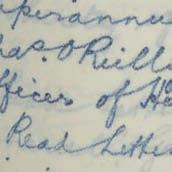 perannu
has. O'Reill
fficer of H
Read Lette